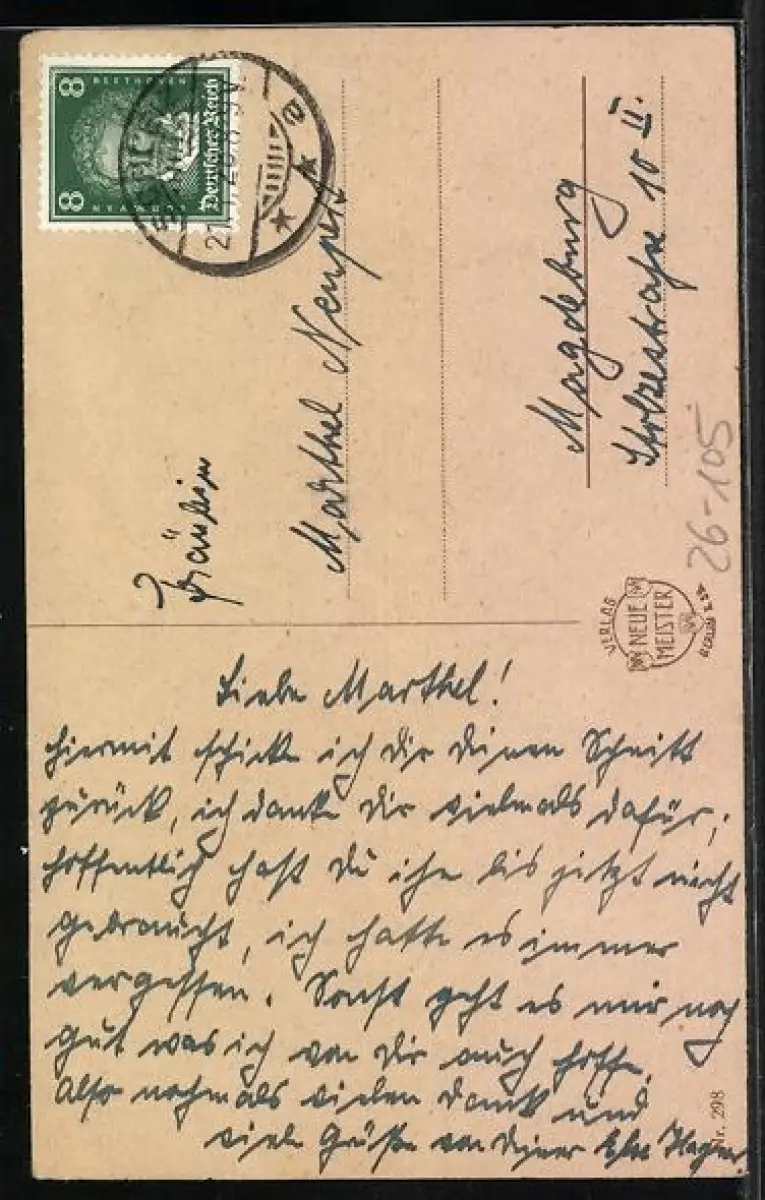 8 BEETHOVEN 8
Deutsches Reich
Fräulein
Marthel Neupert
Magdeburg
Stolzestraße 10 II.
26-105
VERLAG
NEUE
MEISTER
BERLIN
Liebe Marthel!
Hiermit schicke ich Dir Deinen Schnitt
zurück, ich danke Dir vielmals dafür;
hoffentlich hast Du ihn bis jetzt nicht
gebraucht, ich hatte es immer
vergessen. Sonst geht es mir noch
gut was ich von Dir auch hoffe.
Also nochmals vielen Dank und
viele Grüße von Deiner Else Hagen.
Nr. 298